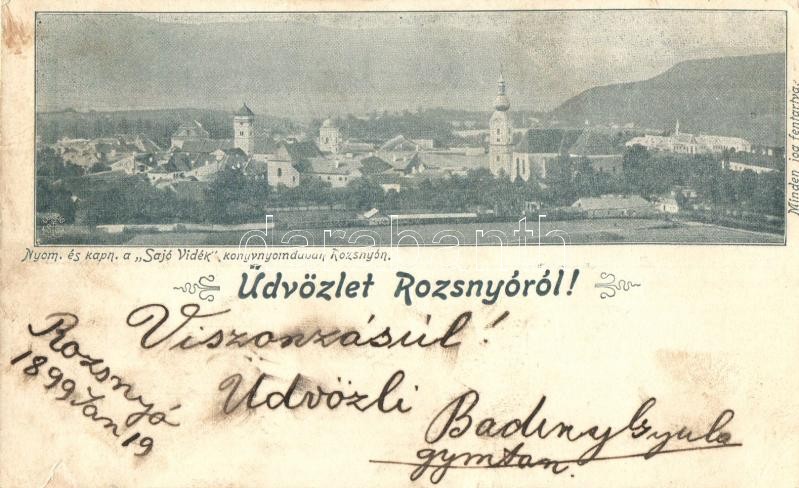 Minden jog fentartva.
darabanth.com
Nyom. és kaph. a „Sajó Vidék" könyvnyomdában Rozsnyón.
Üdvözlet Rozsnyóról!
Viszonzásúl!
Rozsnyó
1899 Jan 19
Üdvözli
Badiny Gyula
gymtan.